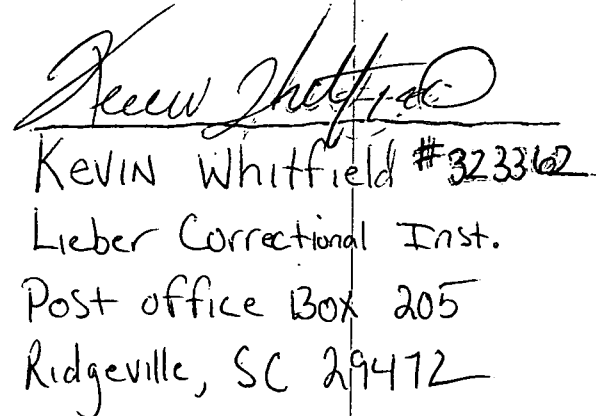 Kevin Whitfield
Kevin Whitfield #323362
Lieber Correctional Inst.
Post office Box 205
Ridgeville, SC 29472